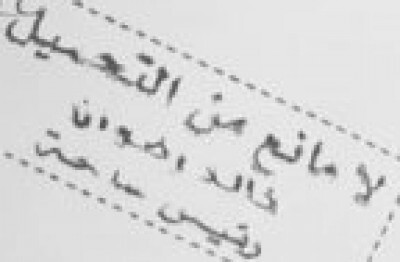 لا مانع من التحميل
خالد رضوان
رئيس ساحة